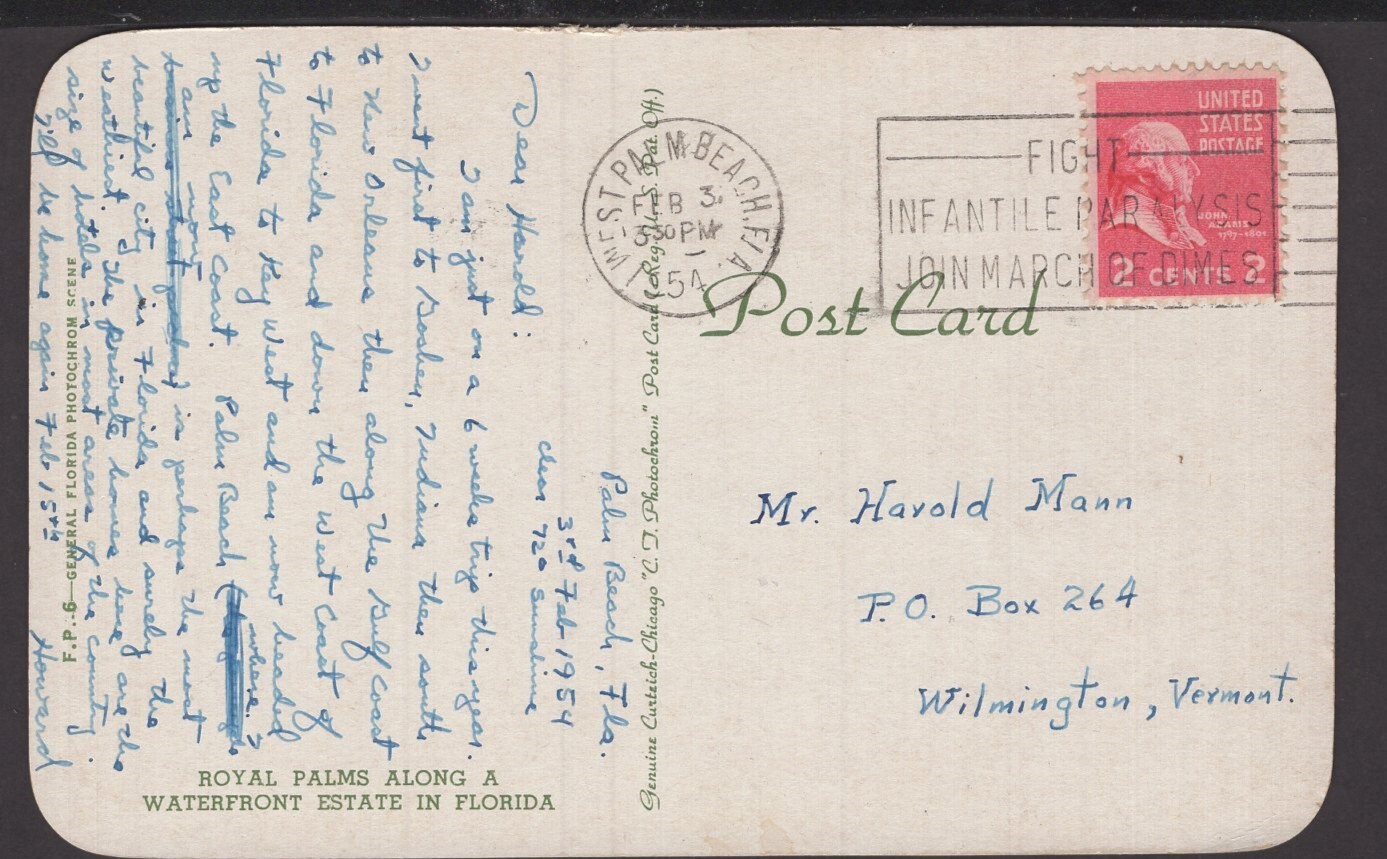 Palm Beach, Fla.
3rd Feb 1954
clear 72° sunshine
Dear Harold:
I am just on a 6 weeks trip this year.
I went first to Goshen, Indiana then south
to New Orleans then along the Gulf Coast
to Florida and down the West Coast of
Florida to Key West and am now headed
up the East Coast. Palm Beach (where I
am now) is perhaps the most
beautiful city in Florida and surely the
wealthiest. The private homes here are the
size of hotels in most areas of the country.
I'll be home again Feb 15th
Howard
F.P.-6—GENERAL FLORIDA PHOTOCHROM SCENE
ROYAL PALMS ALONG A
WATERFRONT ESTATE IN FLORIDA
Genuine Curteich-Chicago "C. T. Photochrom" Post Card (Reg. U. S. Pat. Off.)
WEST PALM BEACH, FLA.
FEB 3
3 30 PM
1954
FIGHT
INFANTILE PARALYSIS
JOIN MARCH OF DIMES
UNITED
STATES
POSTAGE
JOHN
ADAMS
1797-1801
2 CENTS 2
Post Card
Mr. Harold Mann
P.O. Box 264
Wilmington, Vermont.